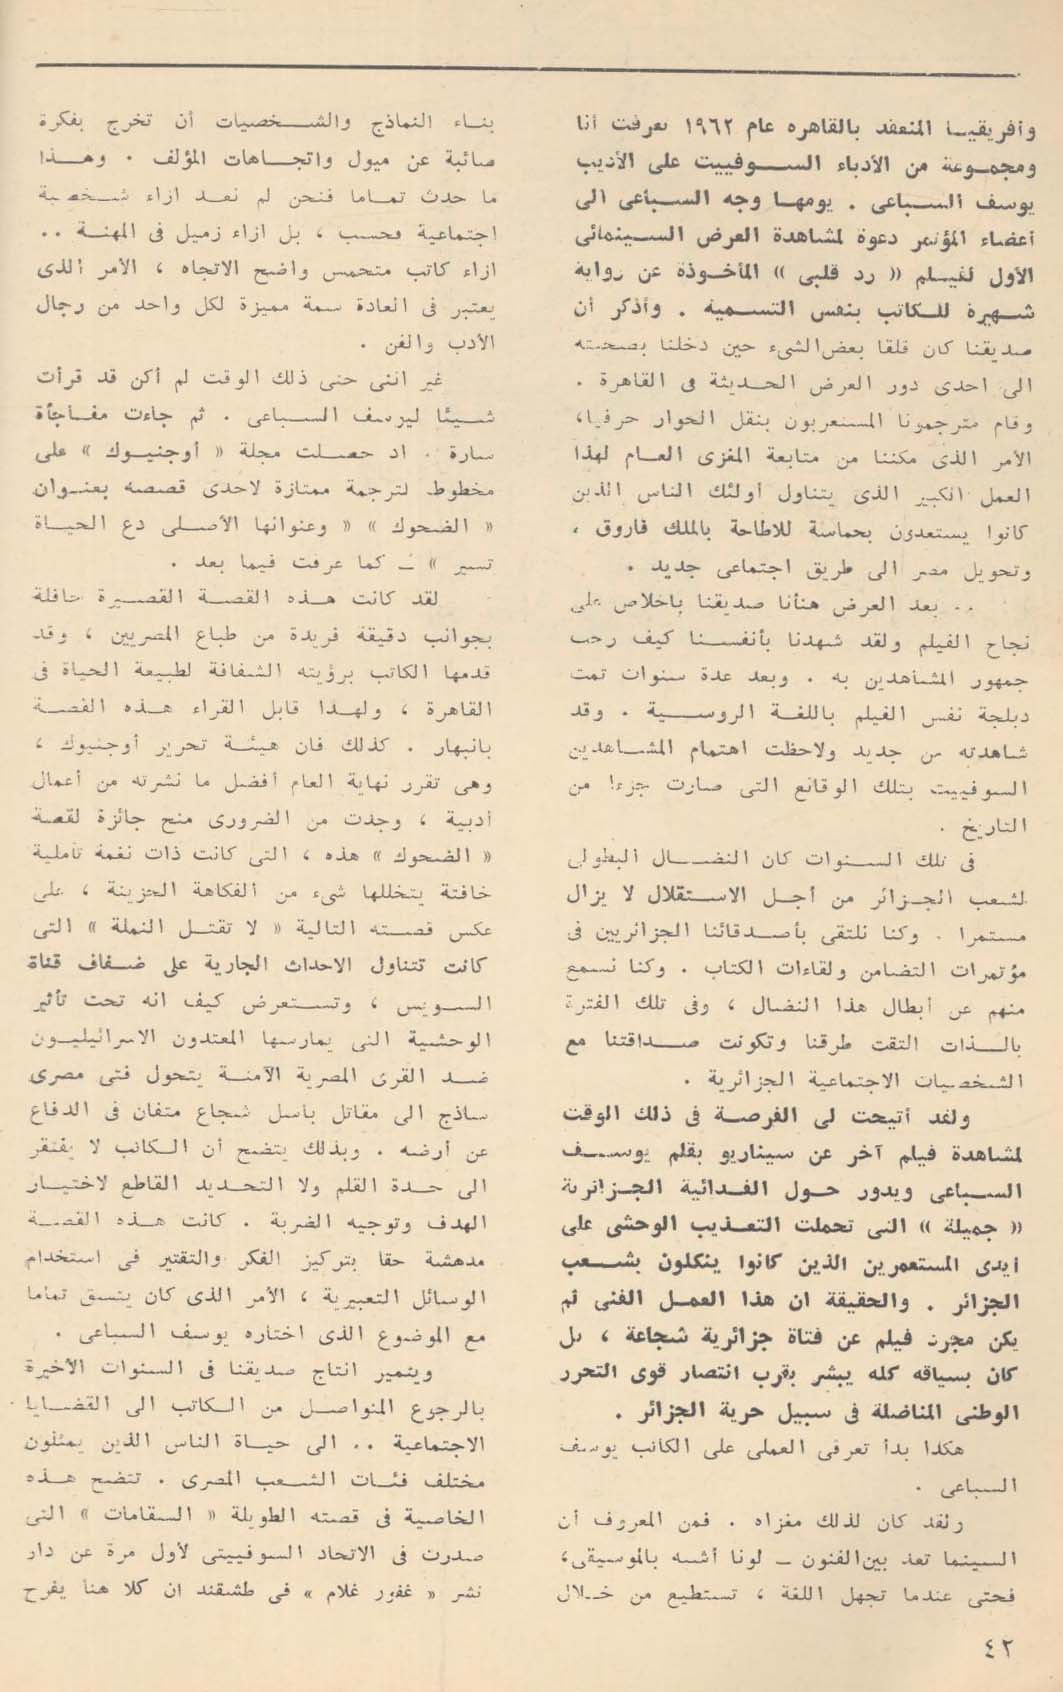 وأفريقيا المنعقد بالقاهرة عام ١٩٦٢ تعرفت أنا
ومجموعة من الأدباء السوفييت على الأديب
يوسف السباعى . يومها وجه السباعى الى
أعضاء المؤتمر دعوة لمشاهدة العرض السينمائى
الأول لفيلم « رد قلبى » المأخوذة عن رواية
شهيرة للكاتب بنفس التسمية . وأذكر أن
صديقنا كان قلقا بعض الشىء حين دخلنا بصحبته
الى احدى دور العرض الحديثة فى القاهرة .
وقام مترجمونا المستعربون بنقل الحوار حرفيا،
الأمر الذى مكننا من متابعة المغزى العام لهذا
العمل الكبير الذى يتناول أولئك الناس الذين
كانوا يستعدون بحماسة للاطاحة بالملك فاروق ،
وتحويل مصر الى طريق اجتماعى جديد .
.. بعد العرض هنأنا صديقنا باخلاص على
نجاح الفيلم ولقد شهدنا بأنفسنا كيف رحب
جمهور المشاهدين به . وبعد عدة سنوات تمت
دبلجة نفس الفيلم باللغة الروسية . وقد
شاهدته من جديد ولاحظت اهتمام المشاهدين
السوفييت بتلك الوقائع التى صارت جزءا من
التاريخ .
فى تلك السنوات كان النضال البطولى
لشعب الجزائر من أجل الاستقلال لا يزال
مستمرا . وكنا نلتقى بأصدقائنا الجزائريين فى
مؤتمرات التضامن ولقاءات الكتاب . وكنا نسمع
منهم عن أبطال هذا النضال ، وفى تلك الفترة
بالذات التقت طرقنا وتكونت صداقتنا مع
الشخصيات الاجتماعية الجزائرية .
ولقد أتيحت لى الفرصة فى ذلك الوقت
لمشاهدة فيلم آخر عن سيناريو بقلم يوسف
السباعى ويدور حول الفدائية الجزائرية
« جميلة » التى تحملت التعذيب الوحشى على
أيدى المستعمرين الذين كانوا ينكلون بشعب
الجزائر . والحقيقة ان هذا العمل الفنى لم
يكن مجرد فيلم عن فتاة جزائرية شجاعة ، بل
كان بسياقه كله يبشر بقرب انتصار قوى التحرر
الوطنى المناضلة فى سبيل حرية الجزائر .
هكذا بدأ تعرفى العملى على الكاتب يوسف
السباعى .
ولقد كان لذلك مغزاه . فمن المعروف أن
السينما تعد بين الفنون ــ لونا أشبه بالموسيقى،
فحتى عندما تجهل اللغة ، تستطيع من خلال
بناء النماذج والشخصيات أن تخرج بفكرة
صائبة عن ميول واتجاهات المؤلف . وهذا
ما حدث تماما فنحن لم نعد ازاء شخصية
اجتماعية فحسب ، بل ازاء زميل فى المهنة ..
ازاء كاتب متحمس واضح الاتجاه ، الأمر الذى
يعتبر فى العادة سمة مميزة لكل واحد من رجال
الأدب والفن .
غير اننى حتى ذلك الوقت لم أكن قد قرأت
شيئا ليوسف السباعى . ثم جاءت مفاجأة
سارة . اذ حصلت مجلة « أوجنيوك » على
مخطوط لترجمة ممتازة لاحدى قصصه بعنوان
« الضحوك » « وعنوانها الأصلى دع الحياة
تسير » ــ كما عرفت فيما بعد .
لقد كانت هذه القصة القصيرة حافلة
بجوانب دقيقة فريدة من طباع المصريين ، وقد
قدمها الكاتب برؤيته الشفافة لطبيعة الحياة فى
القاهرة ، ولهذا قابل القراء هذه القصة
بانبهار . كذلك فان هيئة تحرير أوجنيوك ،
وهى تقرر نهاية العام أفضل ما نشرته من أعمال
أدبية ، وجدت من الضرورى منح جائزة لقصة
« الضحوك » هذه ، التى كانت ذات نغمة تأملية
خافتة يتخللها شىء من الفكاهة الحزينة ، على
عكس قصته التالية « لا تقتل النملة » التى
كانت تتناول الاحداث الجارية على ضفاف قناة
السويس ، وتستعرض كيف انه تحت تأثير
الوحشية التى يمارسها المعتدون الاسرائيليون
ضد القرى المصرية الآمنة يتحول فتى مصرى
ساذج الى مقاتل باسل شجاع متفان فى الدفاع
عن أرضه . وبذلك يتضح أن الكاتب لا يفتقر
الى حدة القلم ولا التحديد القاطع لاختيار
الهدف وتوجيه الضربة . كانت هذه القصة
مدهشة حقا بتركيز الفكر والتقتير فى استخدام
الوسائل التعبيرية ، الأمر الذى كان يتسق تماما
مع الموضوع الذى اختاره يوسف السباعى .
ويتميز انتاج صديقنا فى السنوات الأخيرة
بالرجوع المتواصل من الكاتب الى القضايا
الاجتماعية .. الى حياة الناس الذين يمثلون
مختلف فئات الشعب المصرى . تتضح هذه
الخاصية فى قصته الطويلة « السقامات » التى
صدرت فى الاتحاد السوفييتى لأول مرة عن دار
نشر « غفور غلام » فى طشقند ان كلا هنا يفرح
٤٢